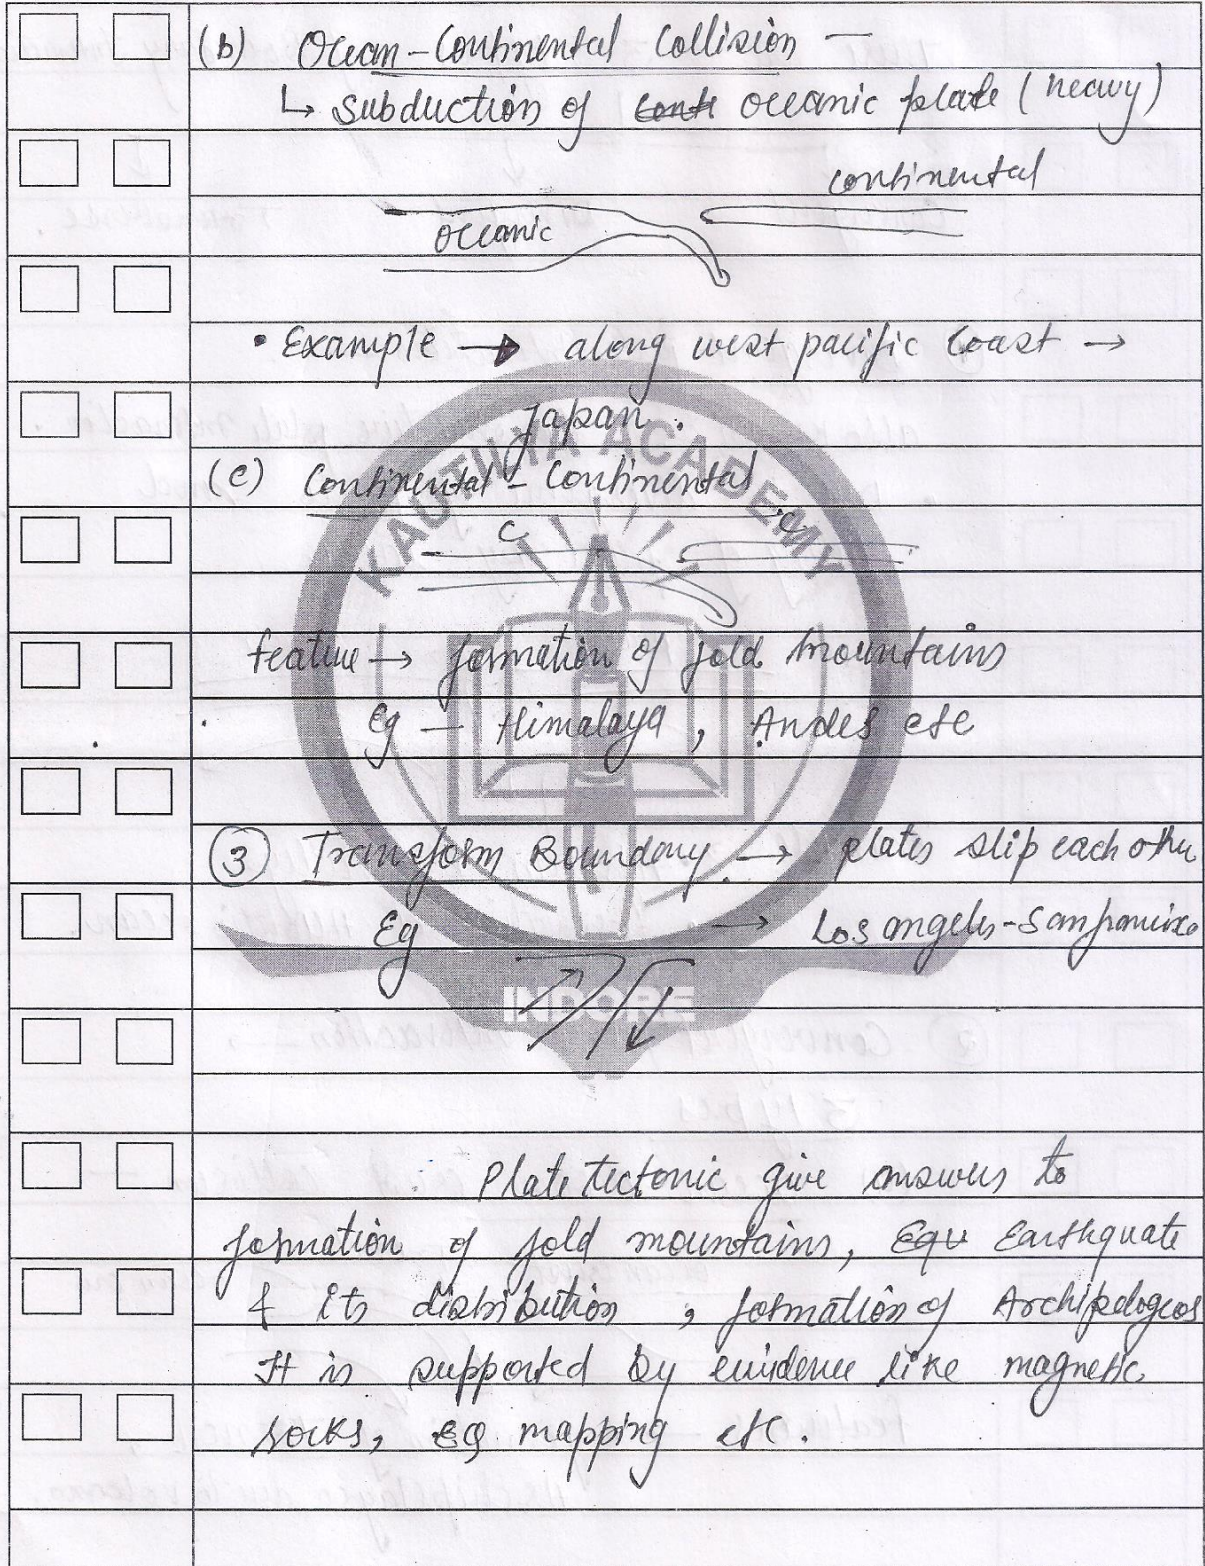 (b) Ocean-Continental Collision —
↳ Subduction of oceanic plate (heavy)
continental
oceanic
• Example → along west pacific Coast →
Japan.
(c) Continental - Continental
c c
feature → formation of fold mountains
Eg — Himalaya, Andes etc
KAUTILYA ACADEMY
(3) Transform Boundary → plates slip each other
Eg → Los angeles-San francisco
INDORE
Plate tectonic give answers to
formation of fold mountains, Equ Earthquate
& its distribution, formation of Archipelogeos
It is supported by evidence like magnetic
rocks, EQ mapping etc.